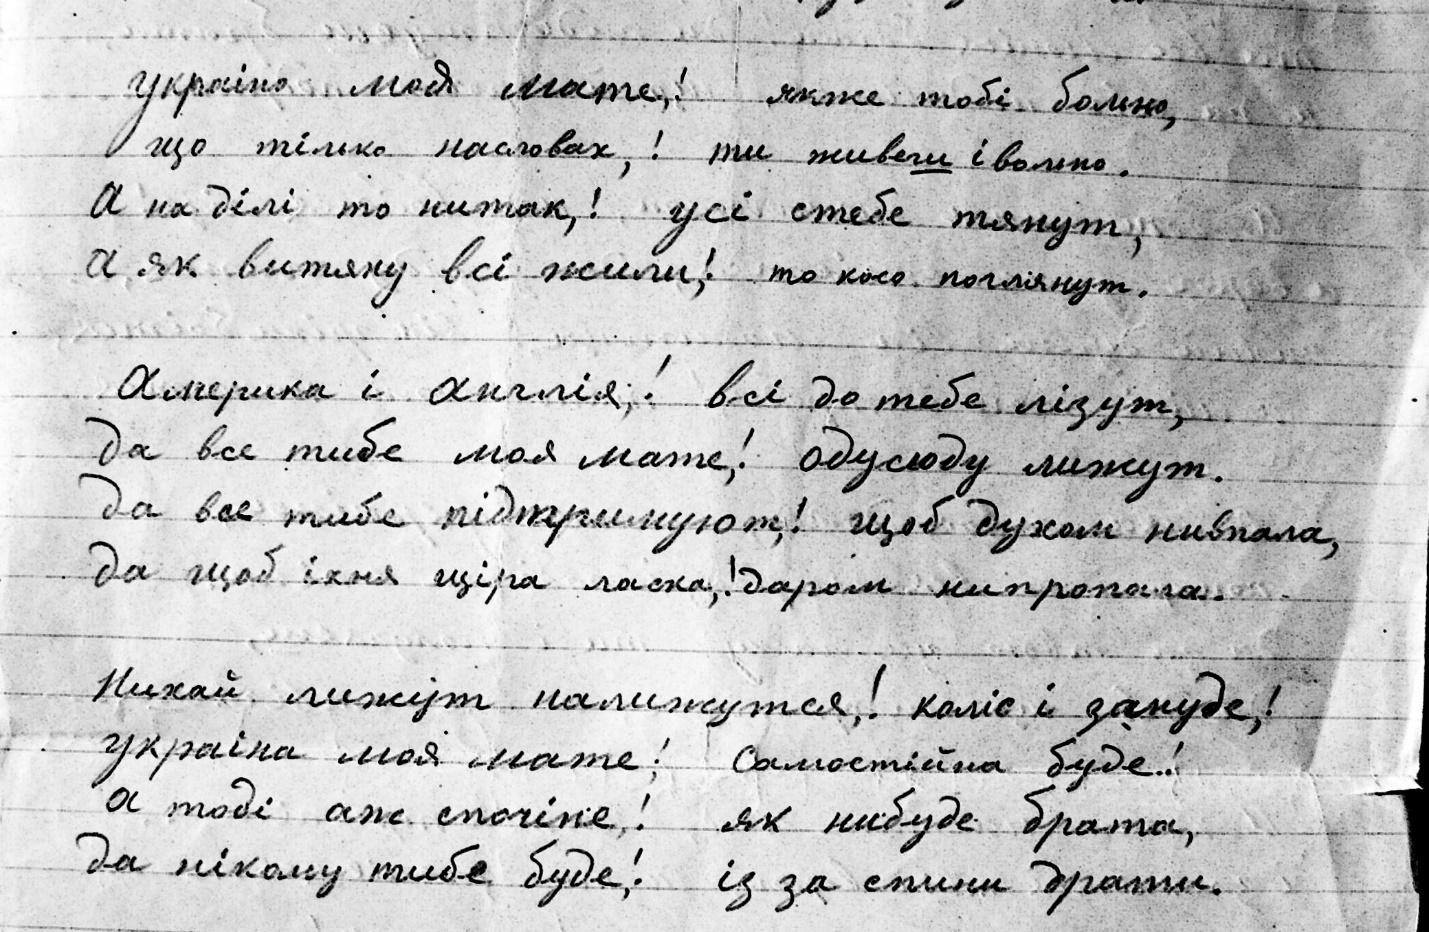 Україно моя мате,! якже тобі больно,
що тілько насловах,! ти живеш івольно.
А на ділі то нитак,! усі стебе тянут,
а як витяну всі жили,! то косо поглянут.
Америка і Англія,! всі до тебе лізут,
да все тибе моя мате,! одусюду лижут.
да все тибе підтримуют,! щоб духом нивпала,
да щоб їхня щіра ласка,! даром нипропала.
Нихай лижут налижутся,! коліс і зануде,!
Україна моя мате! Самостійна буде!
а тоді аж спочіне,! як нибуде брата,
да нікому тибе буде,! із за спини драти.